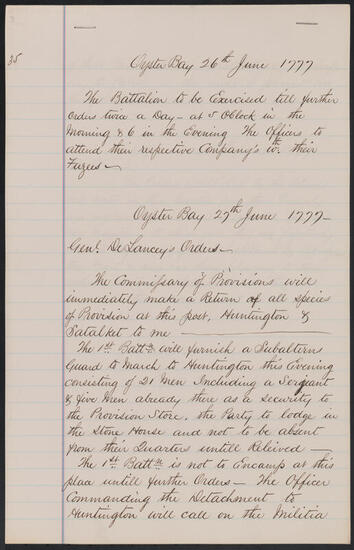 35
Oyster Bay 26th June 1777
The Battalion to be Exercised till further
Orders twice a Day – at 5 oClock in the
Morning & 6 in the Evening The Officers to
attend their respective Company's wth. their
Fuzees –
Oyster Bay 27th June 1777 –
Genl. DeLancey's Orders –
The Commissary of Provisions will
immediately make a Return of all Species
of Provision at this post, Huntington &
Satalket to me –
The 1st Battn will furnish a Subalterns
Guard to March to Huntington this Evening
consisting of 21 Men Including a Sergeant
& five Men already there as a Security to
the Provision Store. the Party to lodge in
the Store House and not to be absent
from their Quarters untill Releived –
The 1st Battn is not to Encamp at this
plaa untill further Orders – The Officer
Commanding the Detachment to
Huntington will call on the Militia